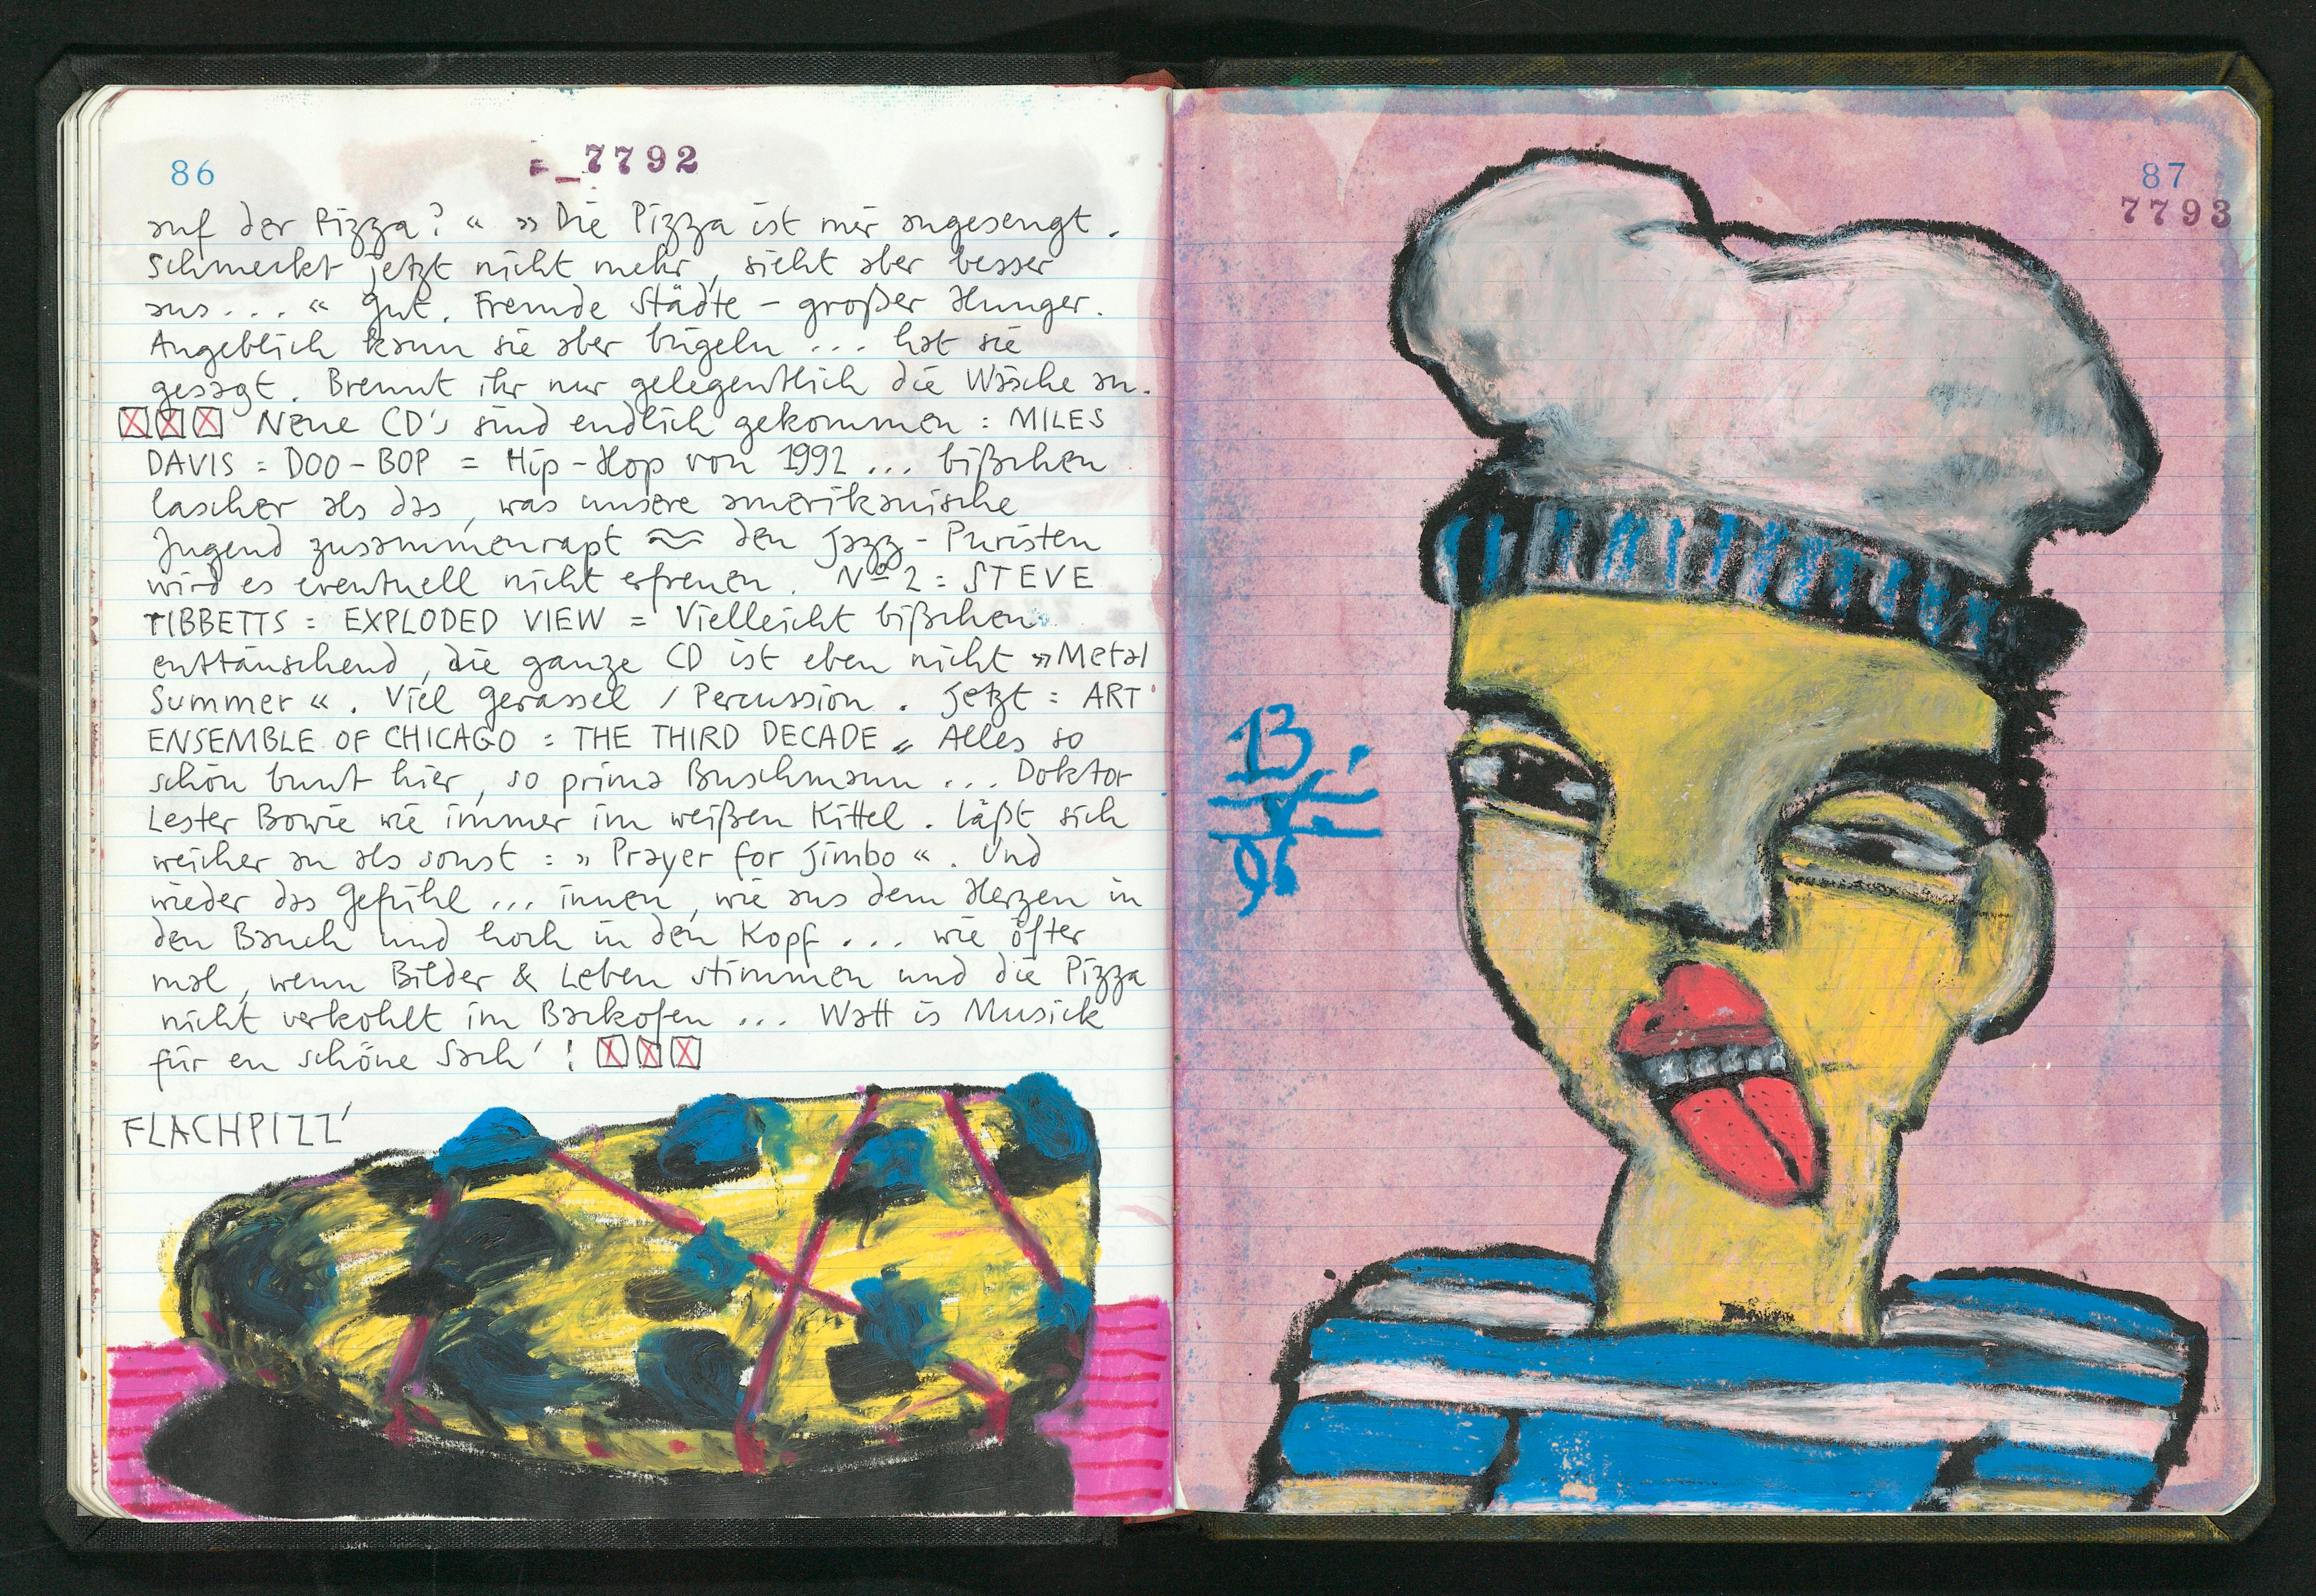 86
7792
auf der Pizza? « » Die Pizza ist mir angesengt.
Schmeckt jetzt nicht mehr, sieht aber besser
aus... « Gut. Fremde Städte – großer Hunger.
Angeblich kann sie aber bügeln ... hat sie
gesagt. Brennt ihr nur gelegentlich die Wäsche an.
Neue CD's sind endlich gekommen : MILES
DAVIS : DOO-BOP = Hip-Hop von 1992 ... bißchen
lascher als das, was unsere amerikanische
Jugend zusammenrapt ≈ den Jazz-Puristen
wird es eventuell nicht erfreuen. Nº 2 : STEVE
TIBBETTS : EXPLODED VIEW = Vielleicht bißchen
enttäuschend, die ganze CD ist eben nicht »Metal
Summer«. Viel Gerassel / Percussion. Jetzt : ART
ENSEMBLE OF CHICAGO : THE THIRD DECADE „ Alles so
schön bunt hier, so prima Buschmann ... Doktor
Lester Bowie wie immer im weißen Kittel. Läßt sich
weicher an als sonst : » Prayer for Jimbo «. Und
wieder das Gefühl ... innen, wie aus dem Herzen in
den Bauch und hoch in den Kopf ... wie öfter
mal, wenn Bilder & Leben stimmen und die Pizza
nicht verkohlt im Backofen ... Watt is Musick
für en schöne Sach' !
FLACHPIZZ'
87
7793
13
X.
96